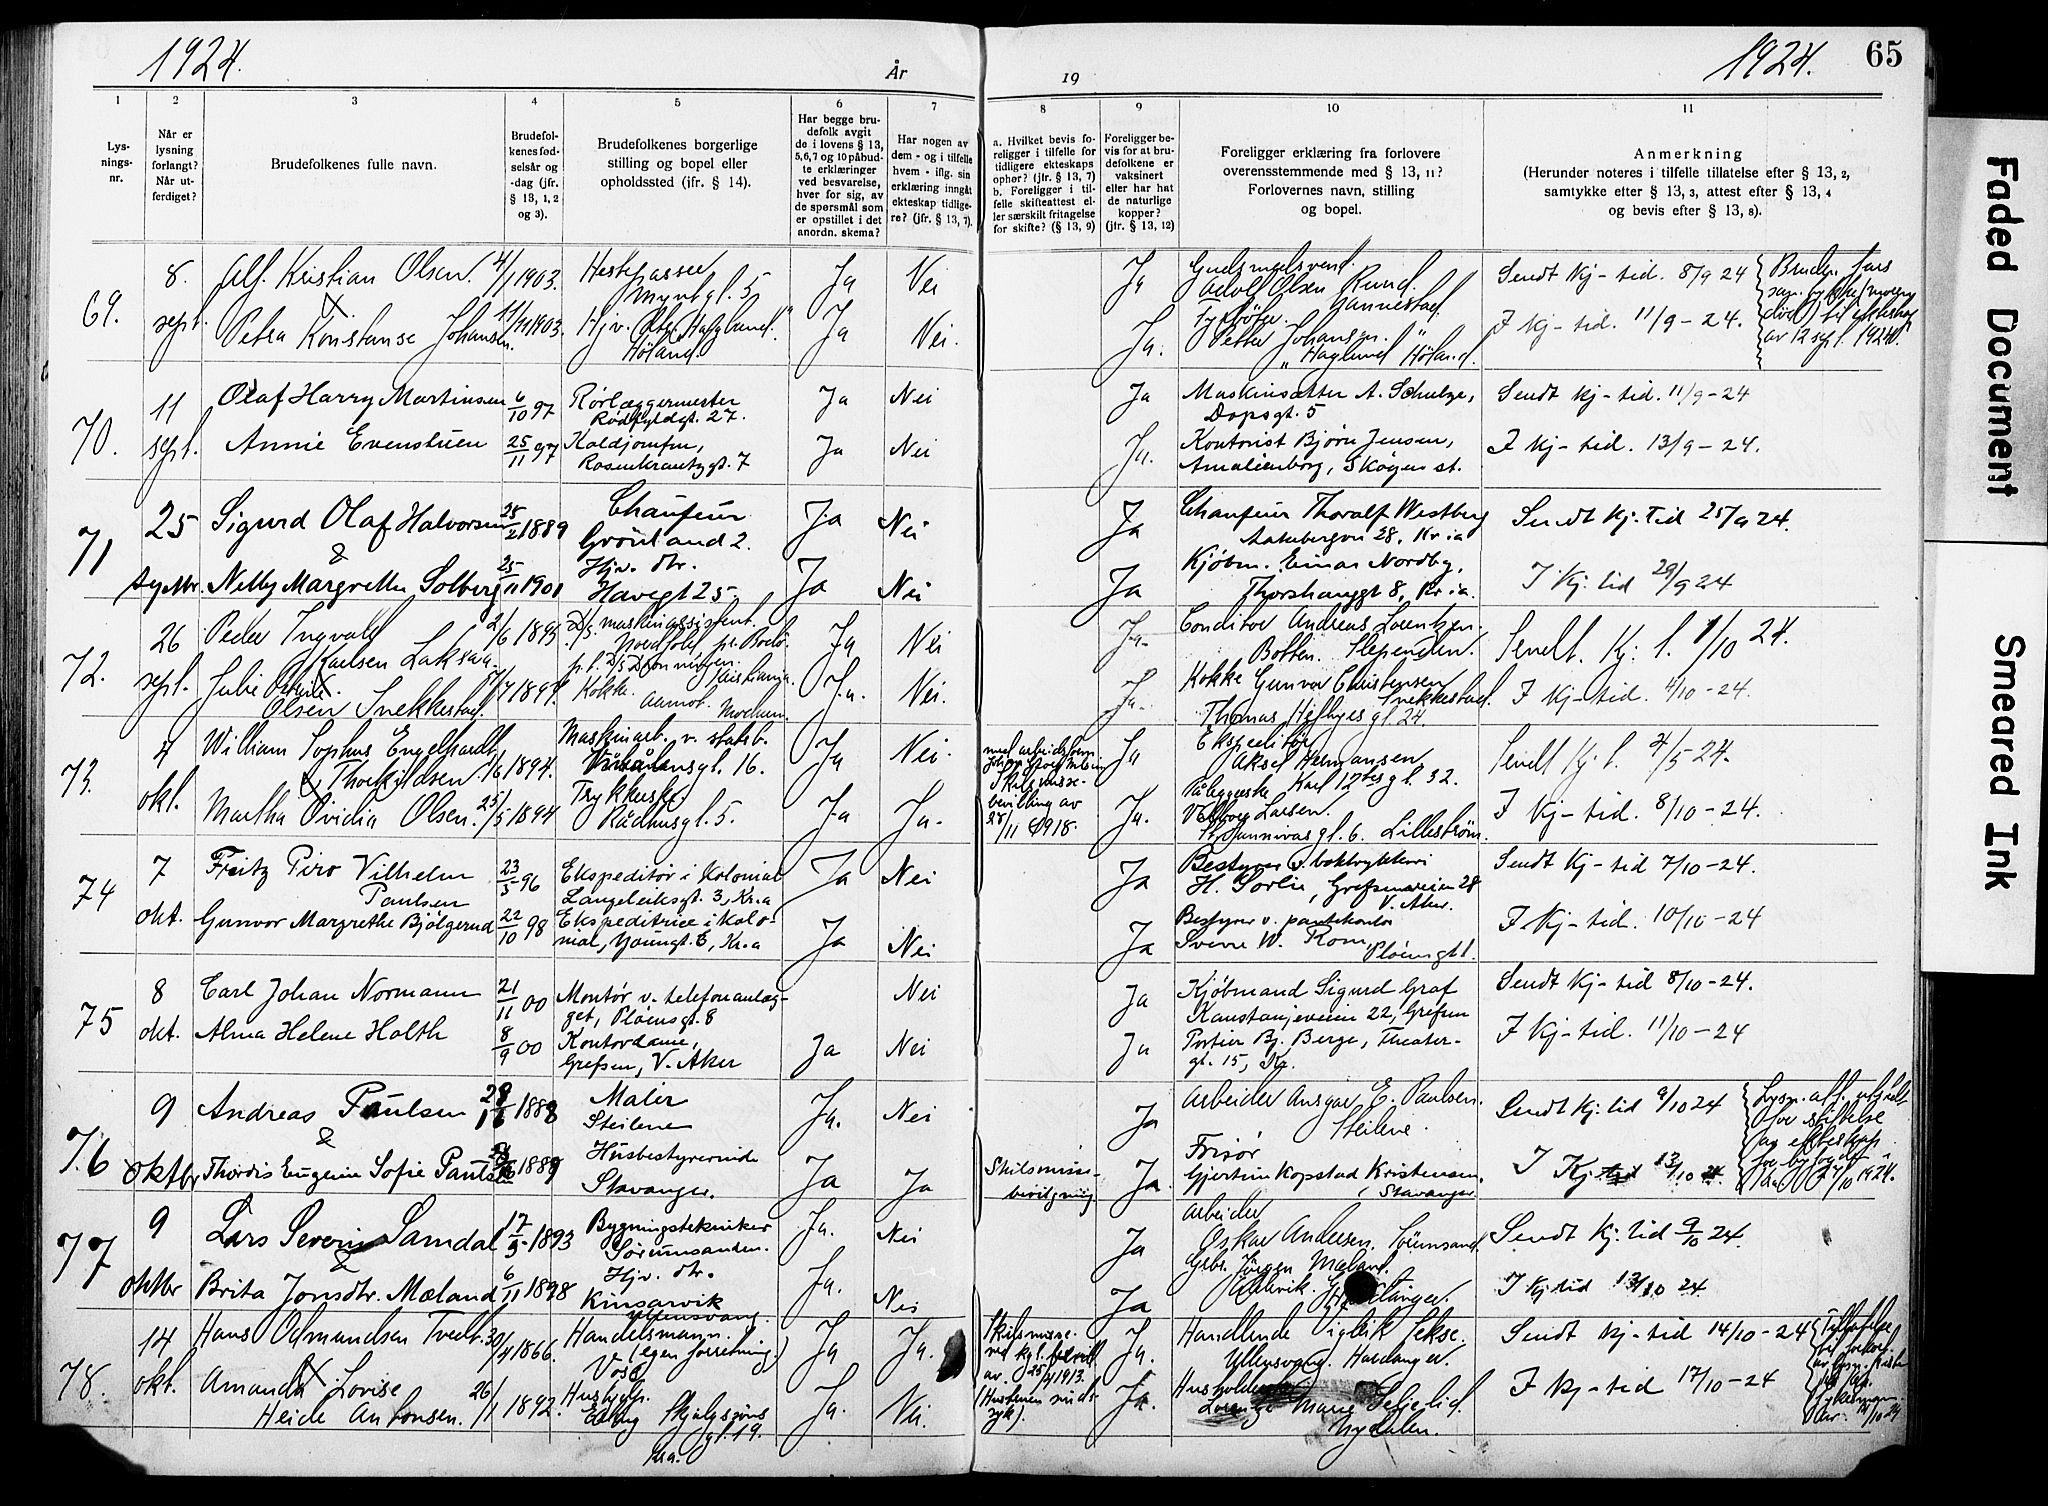 1924.
År
19
1924.
65
1
2
3
4
5
6
7
8
9
10
11
Lys-
nings-
nr.
Når er
lysning
forlangt?
Når ut-
ferdiget?
Brudefolkenes fulle navn.
Brudefol-
kenes fød-
selsår og
-dag (jfr.
§ 13, 1, 2
og 3).
Brudefolkenes borgerlige
stilling og bopel eller
opholdssted (jfr. § 14).
Har begge bru-
defolk avgit
de i lovens § 13,
5, 6, 7 og 10 påbud-
te erklæringer
ved besvarelse,
hver for sig, av
de spørsmål som
er opstillet i det
anordn. skema?
Har nogen av
dem - og i tilfelle
hvem - iflg. sin
erklæring inngått
ekteskap tidlige-
re? (jfr. § 13, 7).
a. Hvilket bevis fo-
religger i tilfelle for
tidligere ekteskaps
ophør? (jfr. § 13, 7)
b. Foreligger i til-
felle skifteattest el-
ler særskilt fritagelse
for skifte? (§ 13, 9)
Foreligger be-
vis for at bru-
defolkene er
vaksinert
eller har hat
de naturlige
kopper?
(jfr. § 13, 12)
Foreligger erklæring fra forlovere
overensstemmende med § 13, 11?
Forlovernes navn, stilling
og bopel.
Anmerkning
(Herunder noteres i tilfelle tillatelse efter § 13, 2,
samtykke efter § 13, 3, attest efter § 13, 4
og bevis efter § 13, 8).
69.
8.
sept.
Alf Kristian Olsen. 4/1 1903.
Ja
Nei
Ja
Adolf Olsen Rund.
Sendt Kj-tid. 8/9 24
Petra Konstanse Johansen. 11/11 1903.
Høland
Ja
Nei.
Ja.
Petter Johansen
Høland.
I Kj-tid. 11/9-24.
70.
11
sept.
Olaf Harry Martinsen 6/10 97
Rørlæggermester
Rodfyldgt. 27.
Ja
Nei
Ja
Maskinsetter A. Schulze,
Dopsgt. 5
Sendt Kj-tid. 11/9-24
Annie Evenstuen 25/11 97
Koldjomfru,
Rosenkrantzgt. 7
Ja
Nei
Ja.
Kontorist Bjørn Jensen,
Amalienborg, Skøyen st.
I Kj-tid. 13/9-24.
71
25
Sigurd Olaf Halvorsen 1889
&
Chaufeur
Grönland 2.
Ja
Nei
Ja
Chaufeur Thoralf Westberg
28, Kr.ia
Sendt Kj.Tid 25/9 24.
Nelly Margrethe Solberg 25/11 1901
Hjv. dtr.
Havegt 25
Ja
Nei
Ja
Kjøbm. Einar Nordby,
Thorshauggt 8, Kr.ia.
I Kj.tid 29/9 24
72.
26
sept.
Peder Ingvald
Karlsen Laksaa. 2/6 1895
Ja
Nei
Ja.
Conditor Andreas Lorentzen.
Botten. Slependen.
Sendt. Kj. t. 1/10 24.
Julie
Olsen Snekkestad. 1897.
Kokke.
Aamot. Modum.
Ja.
Nei.
Ja.
Kokke Gunvor Christensen
Snekkestad.
Thomas Heftyes gt. 24
I Kj-tid. 4/10-24.
73.
4
okt.
William Sophus Engelhardt
Thorkildsen. 1/6 1894.
Maskinarb. v. statsb.
16.
Ja
Nei.
Ja
Ekspeditör
Aksel Hermansen
Karl 12tes gt. 32.
Sendt Kj. t. 4/5-24.
Martha Ovidia Olsen. 25/5 1894
Trykkerske.
Rådhusgt. 5.
Ja
Ja.
Skilsmisse-
bevilling av
28/11 1918.
Ja.
Larsen.
gt. 6. Lillestrøm.
I Kj-tid. 8/10-24.
74
7
okt.
Fritz Piro Vilhelm
Paulsen 23/5 96
Ekspeditør i kolonial
Langeleiksgt. 3, Kr.a
Ja
Nei
Ja
Bestyrer v. boktrykkeri
H. Sorlie, Grefsenveien 28
V. Aker.
Sendt Kj-tid 7/10-24.
Gunvor Margrethe Bjölgerud 22/10 98
Ekspeditrice i kolo-
nial, Youngsgt. 6, Kr.a
Ja
Nei
Ja
Bestyrer v. pantekontor
Sverre W. Rom,
Pløensgt 1.
I Kj-tid. 10/10-24
75
8
okt.
Carl Johan Normann 21/11 00
Montør v. telefonanlæg-
get, Pløensgt. 8
Nei
Ja
Kjøbmand Sigurd Graf
Kastanjeveien 22, Grefsen
Sendt Kj-tid 8/10-24.
Alma Helene Holth 8/9 00
Kontordame,
Grefsen, V. Aker
Ja
Nei
Ja
Portier Bj. Berge, Theater-
gt. 15, Kr.
I Kj-tid. 11/10-24
76
9
oktbr
Andreas Paulsen 1888
&
Maler
Steilene
Ja.
Nei
Ja
Arbeider Ansgar E. Paulsen.
Steilene.
Sendt Kj.tid 9/10 24
Thordis Eugenie Sofie Paulsen 1889
Husbestyrerinde
Stavanger.
Ja
Ja
Skilsmisse-
bevilgning
Ja.
Frisör
Gjertine Kopstad Kristensen,
Stavanger
I Kj.tid 13/10
77
9
oktbr
Lars Severin Samdal 17/5 1893
&
Bygningstekniker
Sörumsanden.
Ja.
Nei
Ja
Arbeider
Oskar Andersen. Sörumsand.
Sendt Kj.tid 9/10 24.
Brita Jonsdtr. Mæland 6/11 1898
Hjv. dtr.
Kinsarvik
Ullensvang.
Ja.
Nei
Ja
Gbr. Jörgen Mæland.
I Kj.tid 13/10 24.
78.
14
okt.
Hans Odmundsen Tveit. 30/4 1866.
Handelsmann.
(egen forretning.)
Voss
Ja
Ja.
Skilsmisse.
av. 25/4 1913.
Ja.
Handlende Vigleik Sekse.
Ullensvang. Hardanger.
Sendt Kj-tid 14/10-24
Amanda Lovise
Heide Antonsen. 26/1 1892.
Hushjelp.
gt. 19.
Kr.a.
Ja.
Nei.
Ja.
Marie Seljelid
Nydalen.
I Kj-tid 17/10-24
Faded Document
Smeared Ink